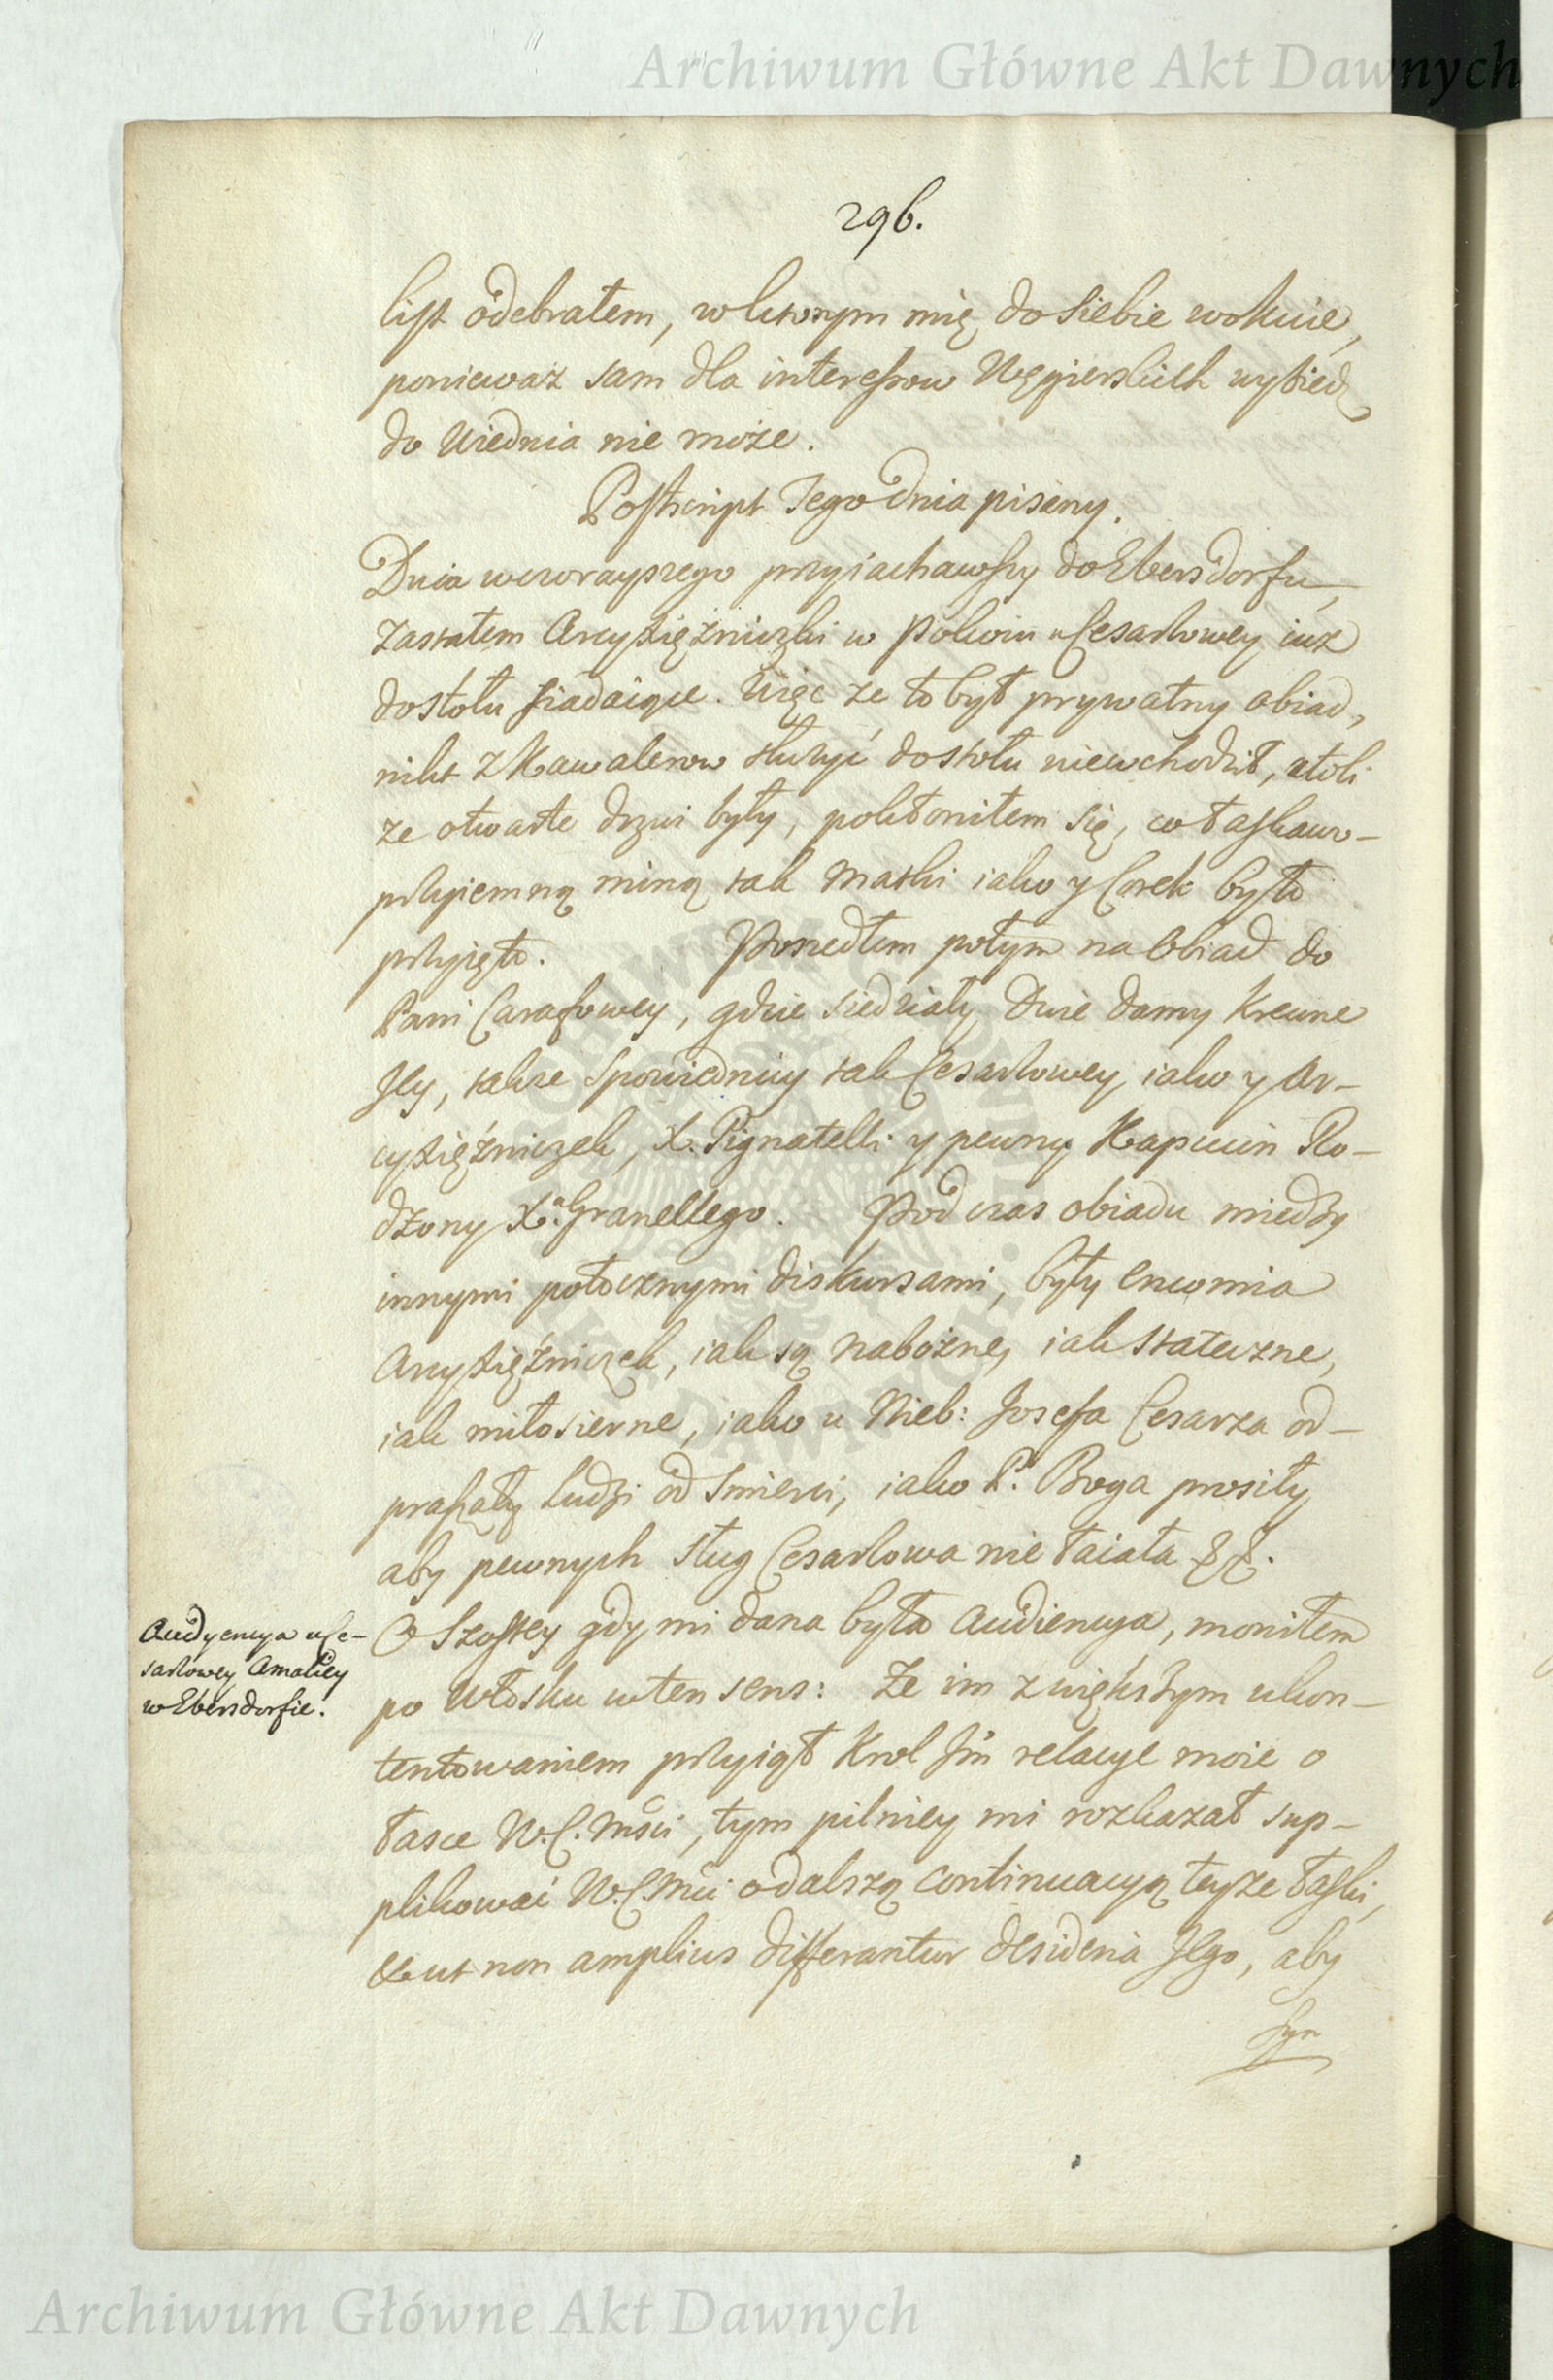 Archiwum Główne Akt Dawnych
296.
list odebrałem, w ktorym mię do siebie wokuie,
ponieważ sam dla interessow Węgierskich wyiied
do Wiednia nie może.
Postscript Tego dnia pisany.
Dnia wczorayszego przyiachawszy do Ebersdorfu,
zastałem Arcyxiężniczki w pokoiu u Cesarzowey iuż
do stołu siadaiące. Więc ze to był prywatny obiad,
nikt z Kawalerow służyć do stołu niewchodził, atoli
ze otwarte drzwi były, pokłoniłem się, co łaskawo-
przyiemną miną tak Matki iako y Corek było
przyięto. Poszedłem potym na Obiad do
Pani Carafowey, gdzie siedziały dwie damy Krewne
Jey, takze Spowiednicy tak Cesarzowey, iako y Ar-
cyxiężniczek, X. Pignatelli y pewny Kapucin Ro-
dzony Xa. Granellego. Pod czas obiadu miedzy
innymi potocznymi diskursami, były encomia
Arcyxiężniczek, iak są nabożne, iak stateczne,
iak miłosierne, iako u Nieb: Josefa Cesarza od-
praszały ludzi od smierci, iako P. Boga prosiły
aby pewnych sług Cesarzowa nie łaiała &&.
Audyencya u Ce-
sarzowey Amaliey
w Ebersdorfie.
O Szostey gdy mi dana była Audiencya, moniłem
po Włosku w ten sens: Ze im z większym ukon-
tentowaniem przyiął Krol Jm relacye moie o
łasce W. C. Mści, tym pilniey mi rozkazał sup-
plikować W. C. Mci o dalszą continuacyą teyże łaski,
& ut non amplius differantur desideria Jego, aby
Syn
Archiwum Główne Akt Dawnych